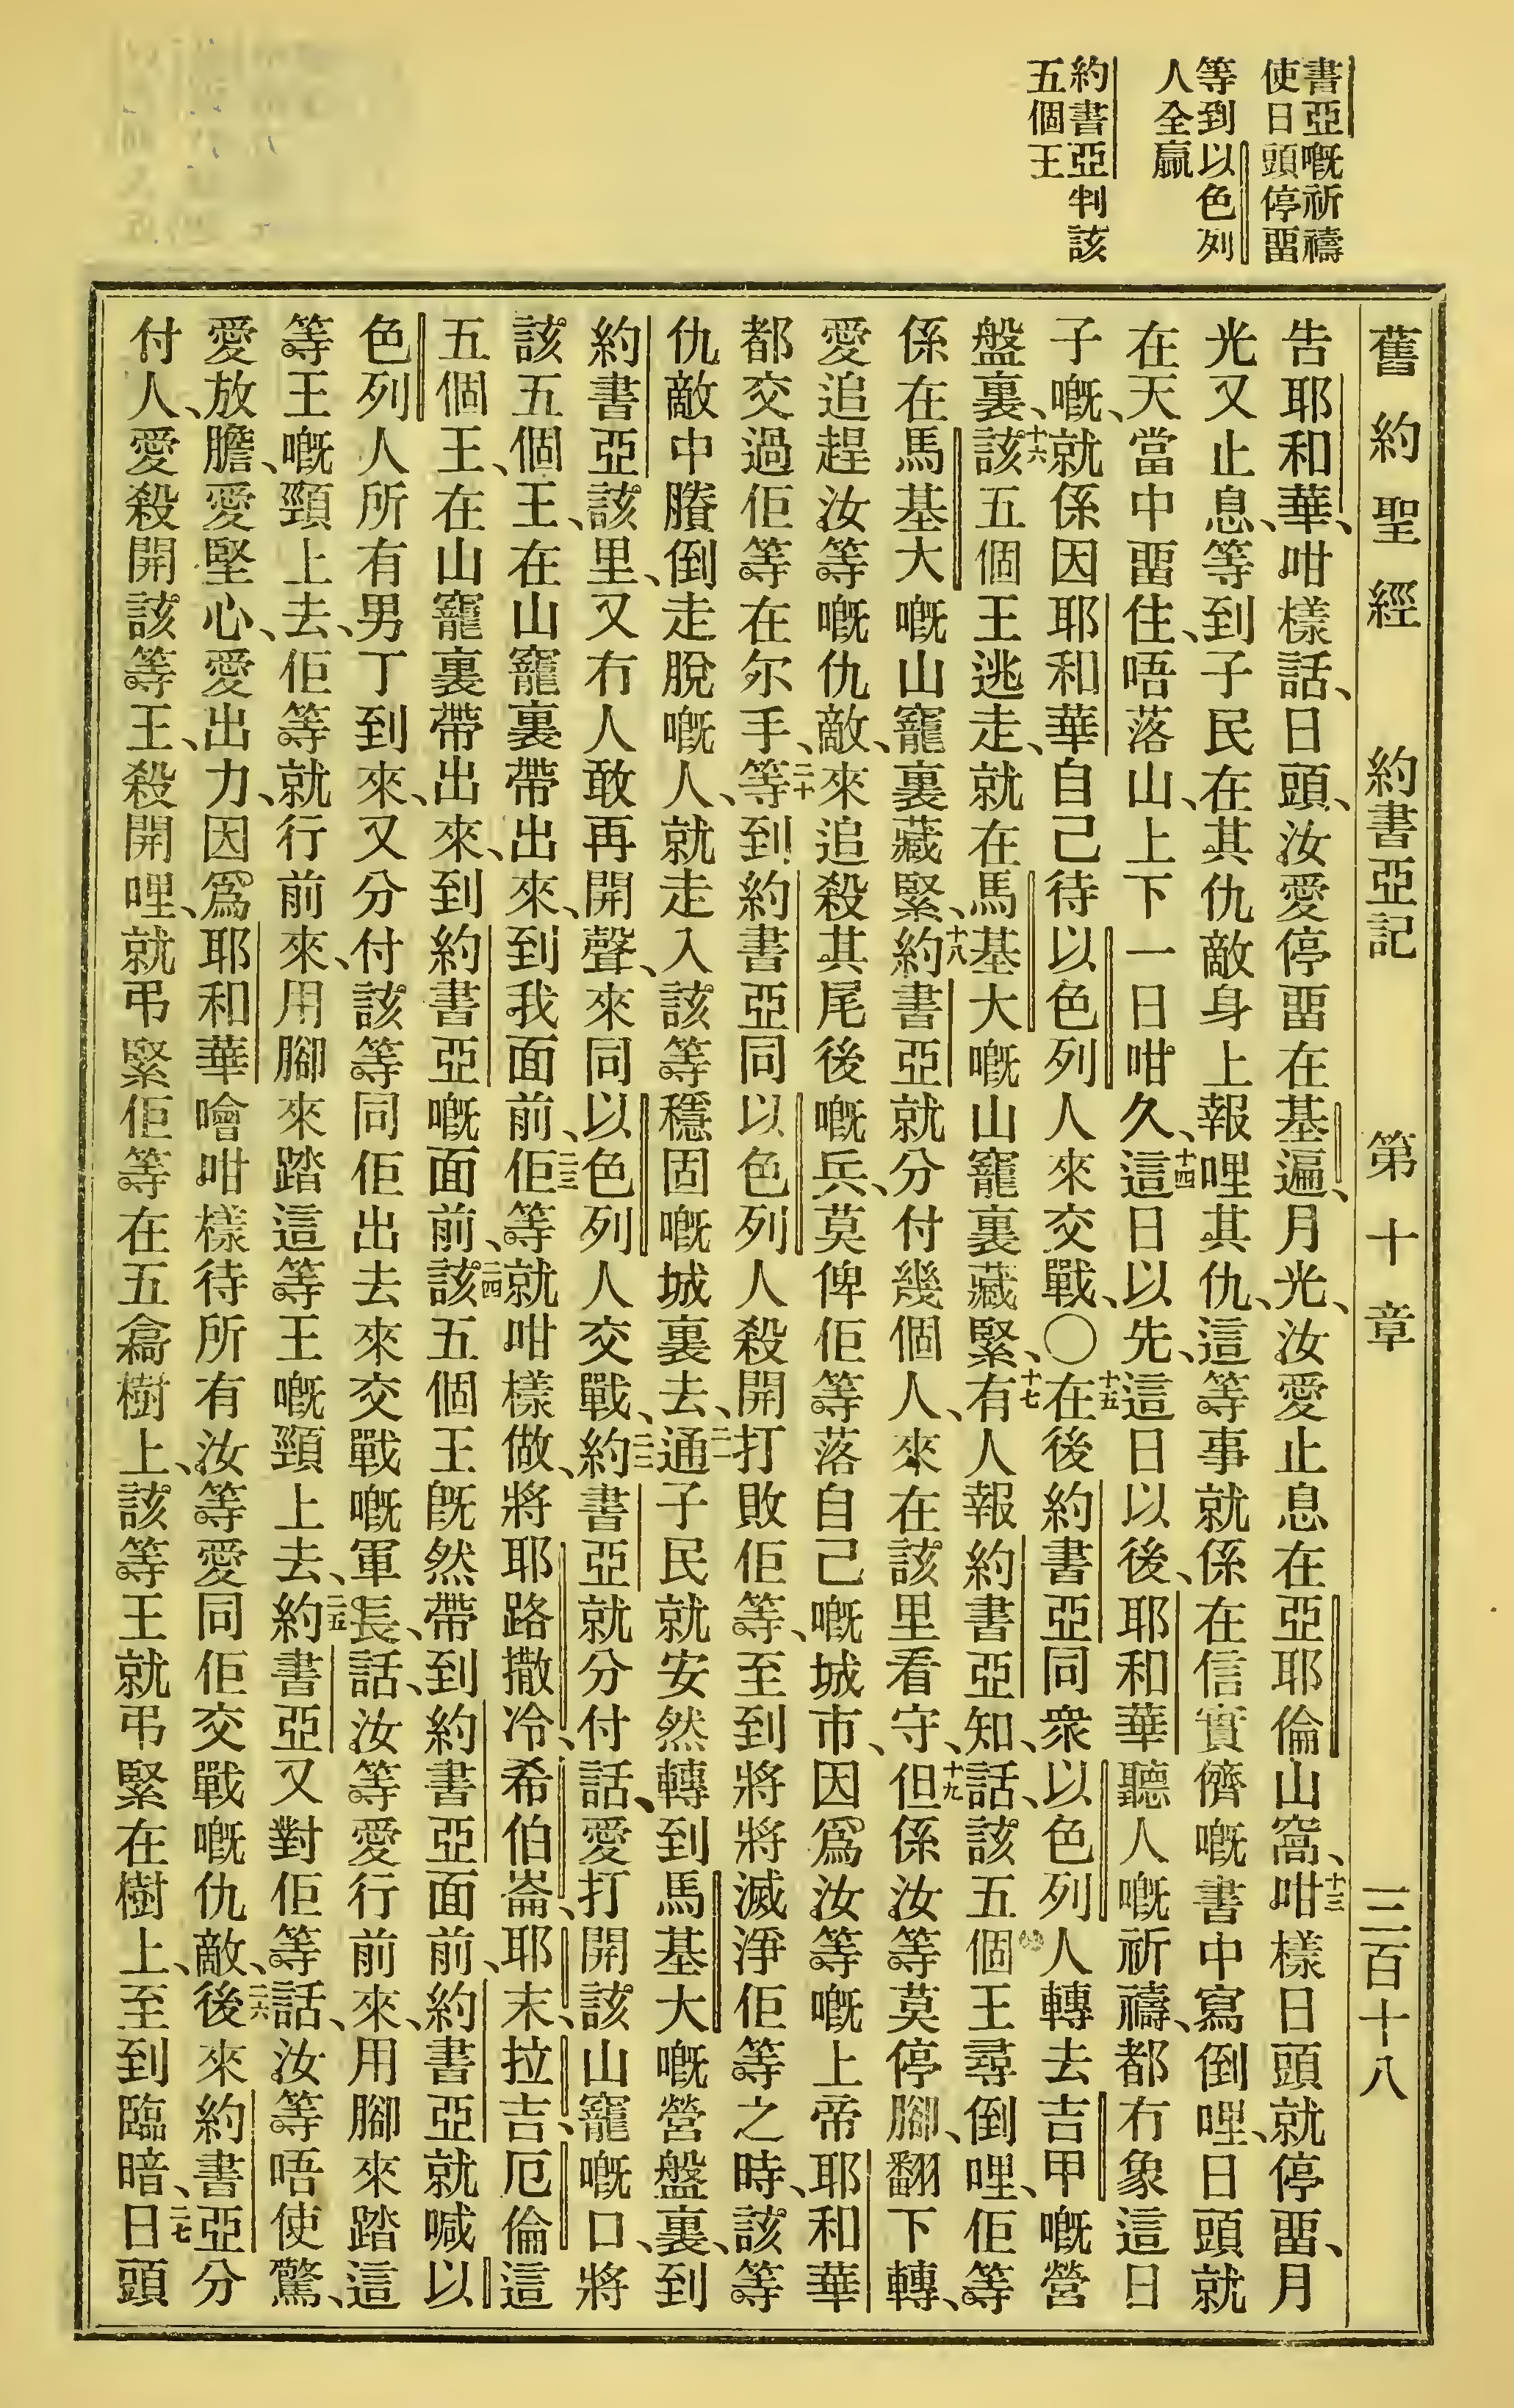 書亞嘅祈禱
使日頭停畱
等到以色列
人全贏
約書亞判該
五個王
舊約聖經 約書亞記 第十章 三百十八
告耶和華、咁樣話、日頭、汝愛停畱在基遍、月光、汝愛止息在亞耶倫山窩、十三咁樣日頭就停畱、月
光又止息、等到子民在其仇敵身上報哩其仇、這等事就係在信實儕嘅書中寫倒哩、日頭就
在天當中畱住、唔落山、上下一日咁久、十四這日以先、這日以後、耶和華聽人嘅祈禱、都冇象這日
子嘅、就係因耶和華自己待以色列人來交戰、〇十五在後約書亞同衆以色列人轉去吉甲嘅營
盤裏、十六該五個王逃走、就在馬基大嘅山竉裏藏緊、十七有人報約書亞知、話、該五個王尋倒哩、佢等
係在馬基大嘅山竉裏藏緊、十八約書亞就分付幾個人、來在該里看守、十九但係汝等莫停腳、翻下轉、
愛追趕汝等嘅仇敵、來追殺其尾後嘅兵、莫俾佢等落自己嘅城市、因爲汝等嘅上帝耶和華
都交過佢等在尔手、二十等到約書亞同以色列人殺開打敗佢等、至到將將滅淨佢等之時、該等
仇敵中賸倒走脫嘅人、就走入該等穩固嘅城裏去、二一通子民就安然轉到馬基大嘅營盤裏、到
約書亞該里、又冇人敢再開聲、來同以色列人交戰、二二約書亞就分付話、愛打開該山竉嘅口、將
該五個王、在山竉裏帶出來、到我面前、二三佢等就咁樣做、將耶路撒冷、希伯崙、耶末、拉吉、厄倫這
五個王、在山竉裏帶出來、到約書亞嘅面前、二四該五個王旣然帶到約書亞面前、約書亞就喊以
色列人所有男丁到來、又分付該等同佢出去來交戰嘅軍長、話、汝等愛行前來、用腳來踏這
等王嘅頸上去、佢等就行前來、用腳來踏這等王嘅頸上去、二五約書亞又對佢等話、汝等唔使驚、
愛放膽、愛堅心、愛出力、因爲耶和華噲咁樣待所有汝等愛同佢交戰嘅仇敵、二六後來約書亞分
付人、愛殺開該等王、殺開哩、就弔緊佢等在五樖樹上、該等王就弔緊在樹上、至到臨暗、二七日頭